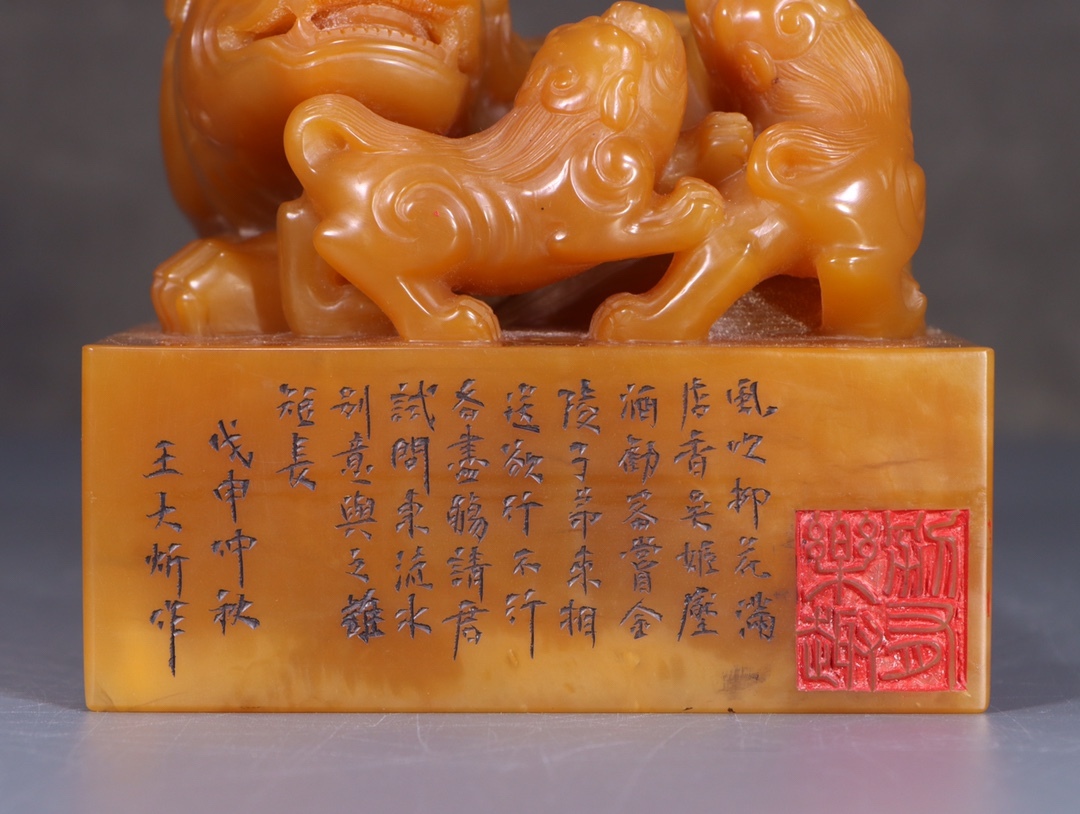 風吹柳花滿
店香吳姬壓
酒勸嘗金
陵子弟來相
送欲行不行
各盡觴請君
試問東流水
別意與之誰
短長
戊申仲秋
王大炘作